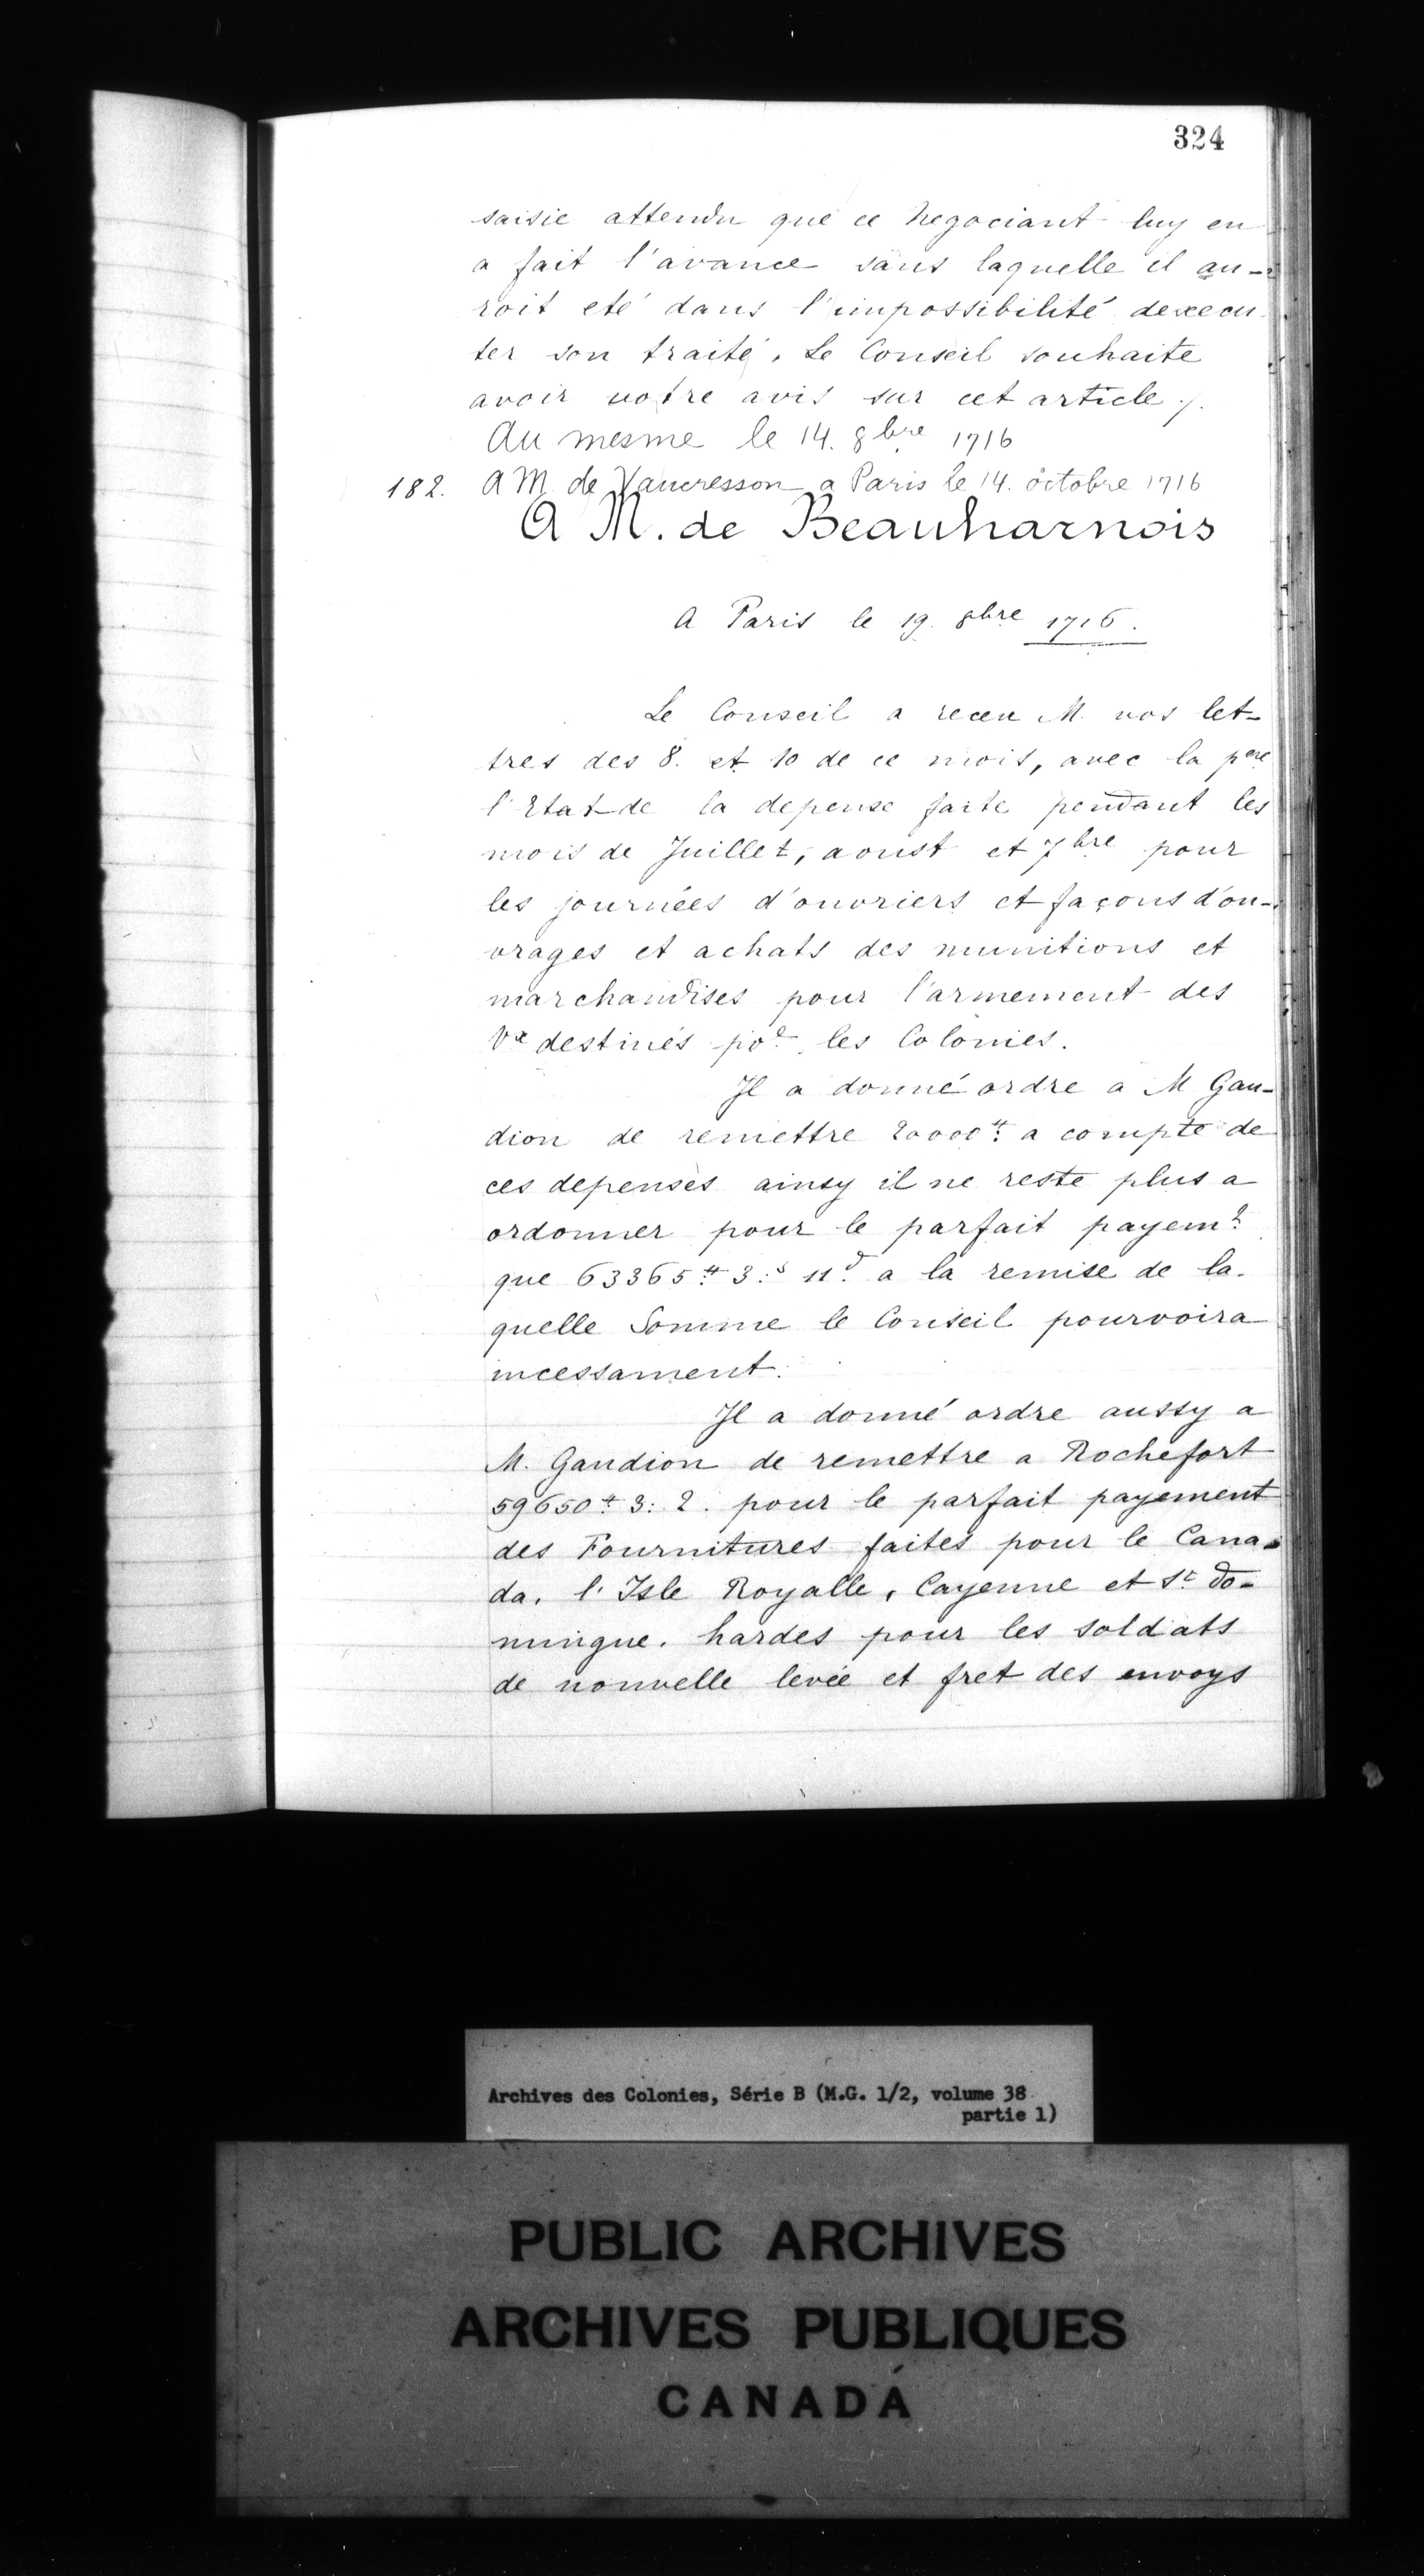 324
saisie attendu que ce Negociant luy en
a fait l'avance sans laquelle il au-
roit eté dans l'impossibilité dexecu
ter son traité. Le Conseil souhaite
avoir votre avis sur cet article ./.
Au mesme le 14. 8bre 1716
182. A M de Vaucresson a Paris le 14. octobre 1716
A M. de Beauharnois
A Paris le 19. 8bre 1716.
Le Conseil a receu M. vos let-
tres des 8. et 10 de ce mois, avec la pere
l'Etat de la depense faite pendant les
mois de Juillet, aoust et 7bre pour
les journées d'ouvriers et façons d'ou-
vrages et achats des munitions et
marchandises pour l'armement des
Vx destinés po^r les Colonies.
Il a donné ordre a M Gau-
dion de remettre 20000tt a compte de
ces depenses ainsy il ne reste plus a
ordonner pour le parfait payem^t
que 63365tt 3:s 11d a la remise de la-
quelle Somme le Conseil pourvoira
incessament.
Il a donné ordre aussy a
M. Gaudion de remettre a Rochefort
59650tt 3: 2. pour le parfait payement
des Fournitures faites pour le Cana-
da, l'Isle Royalle, Cayenne et St do-
mingue. hardes pour les soldats
de nouvelle levée et fret des envoys
Archives des Colonies, Série B (M.G. 1/2, volume 38
partie 1)
PUBLIC ARCHIVES
ARCHIVES PUBLIQUES
CANADA